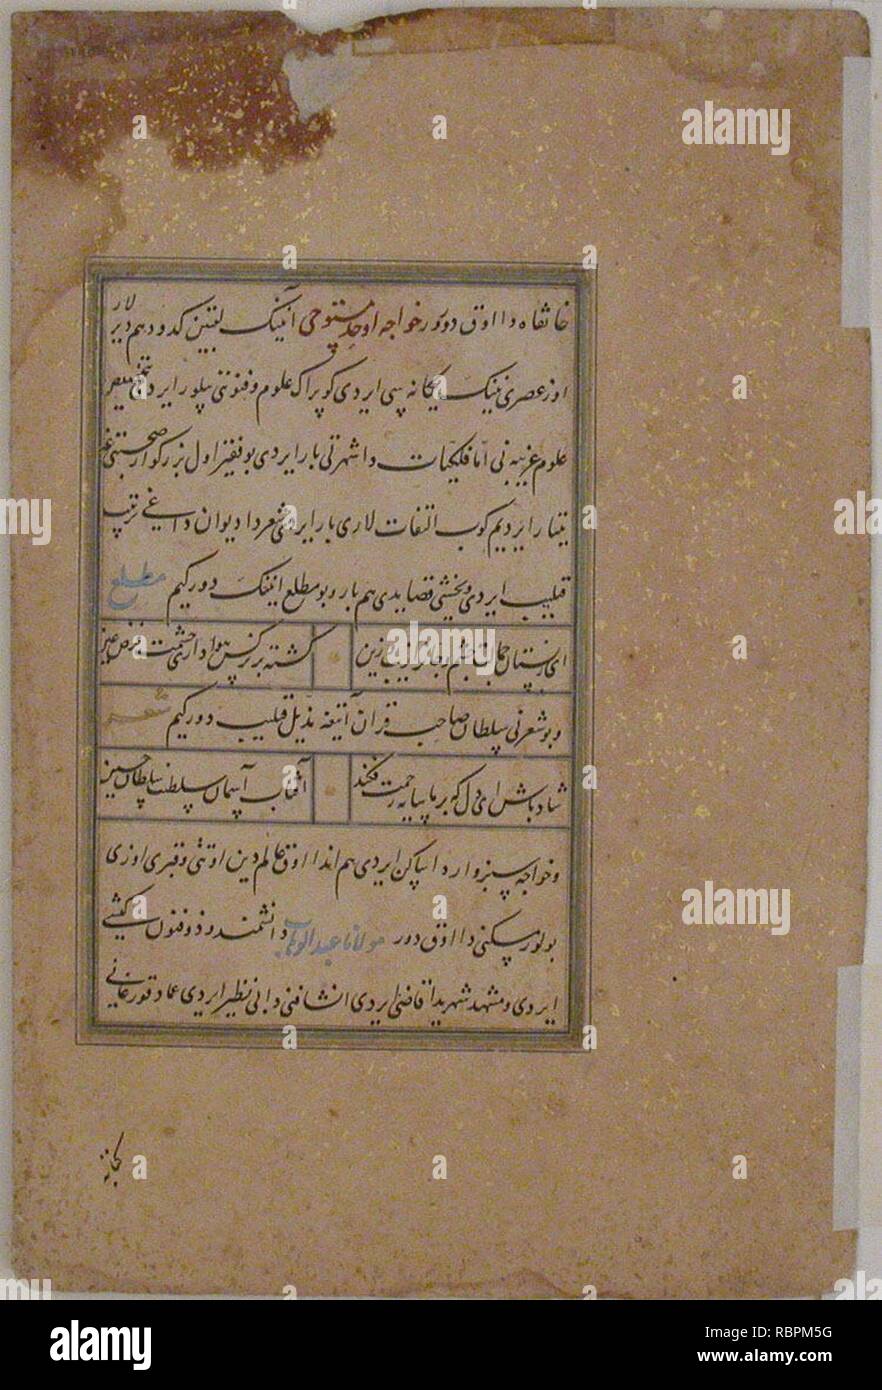 خانقاه دا اوق دورور خواجه اوحد مستوفی آنینک لقبین کدودیم دیر لار
اوز عصری نینک یکانه سی ایردی کوپراک علوم و فنونی بیلور ایردی
علوم غریبه نی اما فلکیات دا شهرتی بار ایردی بو فقیر اول بزرکوار صحبتی غه
یتیار ایردیم کوب التفات لاری بار ایردی شعر دا دیوان داغی ترتیب
قیلیب ایردی و یخشی قصایدی هم بار و بو مطلع انینک دور کیم مطلع
کشته بر نرکس هواداری چشمت فرض عین
و بو شعر نی سلطان صاحب قران آتیغه مذیل قیلیب دور کیم شعر
شاد باش ای دل که بر ما سایه رحمت فکند
آفتاب آسمان سلطنت سلطان حسین
و خواجه سبزوار دا ساکن ایردی هم اندا اوق عالم دین اوتتی و قبری اوزی
بولور مسکنی دا اوق دور مولانا عبدالوهاب دانشمند و ذوفنون کیشی
ایردی و مشهد شهریدا قاضی ایردی انشا فنی دا بی نظیر ایردی عماد قورغانی
alamy
Image ID: RBPM5G
www.alamy.com